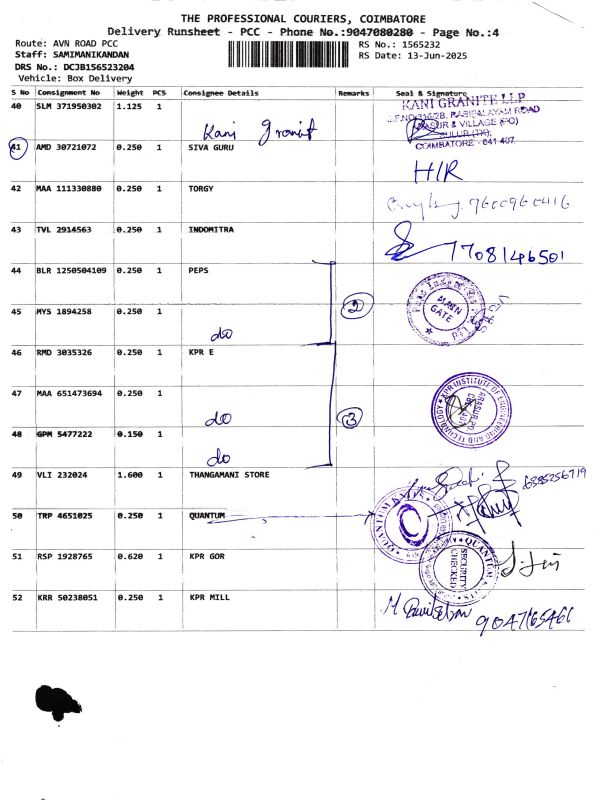 THE PROFESSIONAL COURIERS, COIMBATORE
Delivery Runsheet - PCC - Phone No.:9047080280 - Page No.:4
Route: AVN ROAD PCC
Staff: SAMIMANIKANDAN
DRS No.: DCJB156523204
Vehicle: Box Delivery
RS No.: 1565232
RS Date: 13-Jun-2025
S No Consignment No Weight PCS Consignee Details Remarks Seal & Signature
40 SLM 371950302 1.125 1 Kani Granit
KANI GRANITE LLP
S.F.NO:316/2B, RASIPALAYAM ROAD
& VILLAGE (PO)
SULUR (TK),
COIMBATORE - 641 407
41 AMD 30721072 0.250 1 SIVA GURU H/R
42 MAA 111330880 0.250 1 TORGY 9600960416
43 TVL 2914563 0.250 1 INDOMITRA 7708146501
44 BLR 1250504109 0.250 1 PEPS
2
MAIN
GATE
45 MYS 1894258 0.250 1 do
46 RMD 3035326 0.250 1 KPR E
47 MAA 651473694 0.250 1 do 3
KPR INSTITUTE OF ENGINEERING AND TECHNOLOGY
ARASUR PO
48 GPM 5477222 0.150 1 do
49 VLI 232024 1.600 1 THANGAMANI STORE 6385256719
50 TRP 4651025 0.250 1 QUANTUM
QUANTUM KNITS
51 RSP 1928765 0.620 1 KPR GOR
QUANTUM
SECURITY
CHECKED
52 KRR 50238051 0.250 1 KPR MILL 9047165461